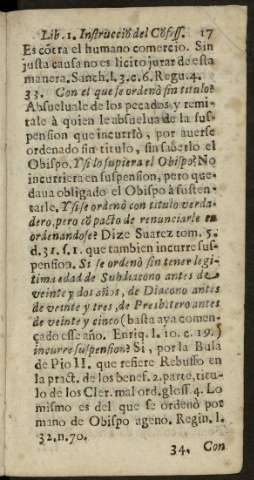 Lib. 1. Instrucció del Cõfess. 17
Es cõtra el humano comercio. Sin
justa causa no es licito jurar de esta
manera. Sanch. l. 3. c. 6. Regu. 4.
33. Con el que se ordenò sin titulo?
Absueluale de los pecados, y remi-
tale à quien le absuelua de la sus-
pension que incurriò, por auerse
ordenado sin titulo, sin saberlo el
Obispo. Y si lo supiera el Obispo? No
incurriera en suspension, pero que-
daua obligado el Obispo à susten-
tarle. Y si se ordenò con titulo verda-
dero, pero cõ pacto de renunciarle en
ordenandose? Dize Suarez tom. 5.
d. 31. s. 1. que tambien incurre sus-
pension. Si se ordenò sin tener legi-
tima edad de Subdiacono antes de
veinte y dos años, de Diacono antes
de veinte y tres, de Presbitero antes
de veinte y cinco (basta aya comen-
çado esse año. Enriq. l. 10. c. 19.)
incurre suspension? Si, por la Bula
de Pio II. que refiere Rebusso en
la pract. de los benef. 2. parte, titu-
lo de los Cler. mal ord. gloss. 4. Lo
mismo es del que se ordenò por
mano de Obispo ageno. Regin. l.
32. n. 70.
34. Con